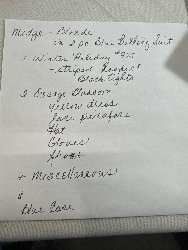 Midge - Blonde
in 2 pc Blue Bathing Suit
1 Winter Holiday #975
- striped
Black tights
2 Orange Blossom
yellow dress
lace pinafore
Hat
Gloves
Shoes
+ Miscellaneous
&
Blue Case